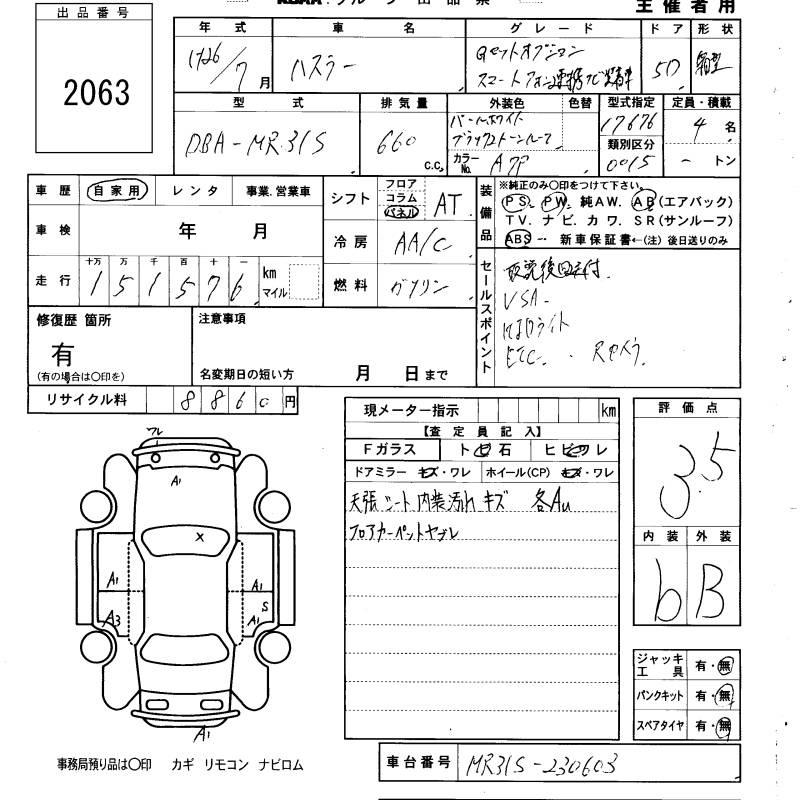 出品番号
2063
主催者用
年式 車名 グレード ドア 形状
H26/7月 ハスラー Gセットオプション 5D 箱型
スマートフォン連携ナビ装着車
型式 排気量 外装色 色替 型式指定 定員・積載
DBA-MR31S 660 c.c. パールホワイト 17676 4名
ブラック2トーンルーフ 類別区分
カラーNo. A7P 0015 - トン
車歴 自家用 レンタ 事業.営業車
車検 年 月
走行 十万 万 千 百 十 一
151576 km マイル
シフト フロア コラム パネル AT
冷房 AA/C
燃料 ガソリン
装備品 ※純正のみ〇印をつけて下さい。
PS. PW. 純AW. AB(エアバック)
TV. ナビ. カワ. SR(サンルーフ)
ABS -- 新車保証書←(注)後日送りのみ
セールスポイント
取説後日送付.
VSA.
HIDライト
ETC.
修復歴 箇所
有
(有の場合は〇印を)
注意事項
名変期日の短い方 月 日まで
リサイクル料 8860円
現メーター指示 km
【査定員記入】
Fガラス トビ石 ヒビワレ
ドアミラー キズ・ワレ ホイール(CP) キズ・ワレ
天張シート 内装汚れ キズ 各AU
フロアカーペットヤブレ
評価点
3.5
内装 外装
b B
フレ
A1
X
A1 A1
A3 S
A1
A1
ジャッキ工具 有・無
パンクキット 有・無
スペアタイヤ 有・無
事務局預り品は〇印 カギ リモコン ナビロム
車台番号 MR31S-230603